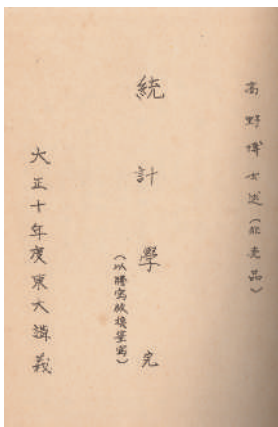 高野博士述(非売品)
統計學完
(以謄寫故換筆寫)
大正十年度東大講義